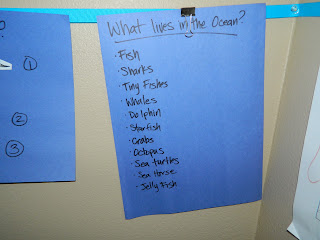 ?
①
②
③
What lives in the Ocean?
· Fish
· Sharks
· Tiny Fishes
· Whales
· Dolphin
· Starfish
· Crabs
· Octopus
· Sea turtles
· Sea Horse
· Jelly Fish